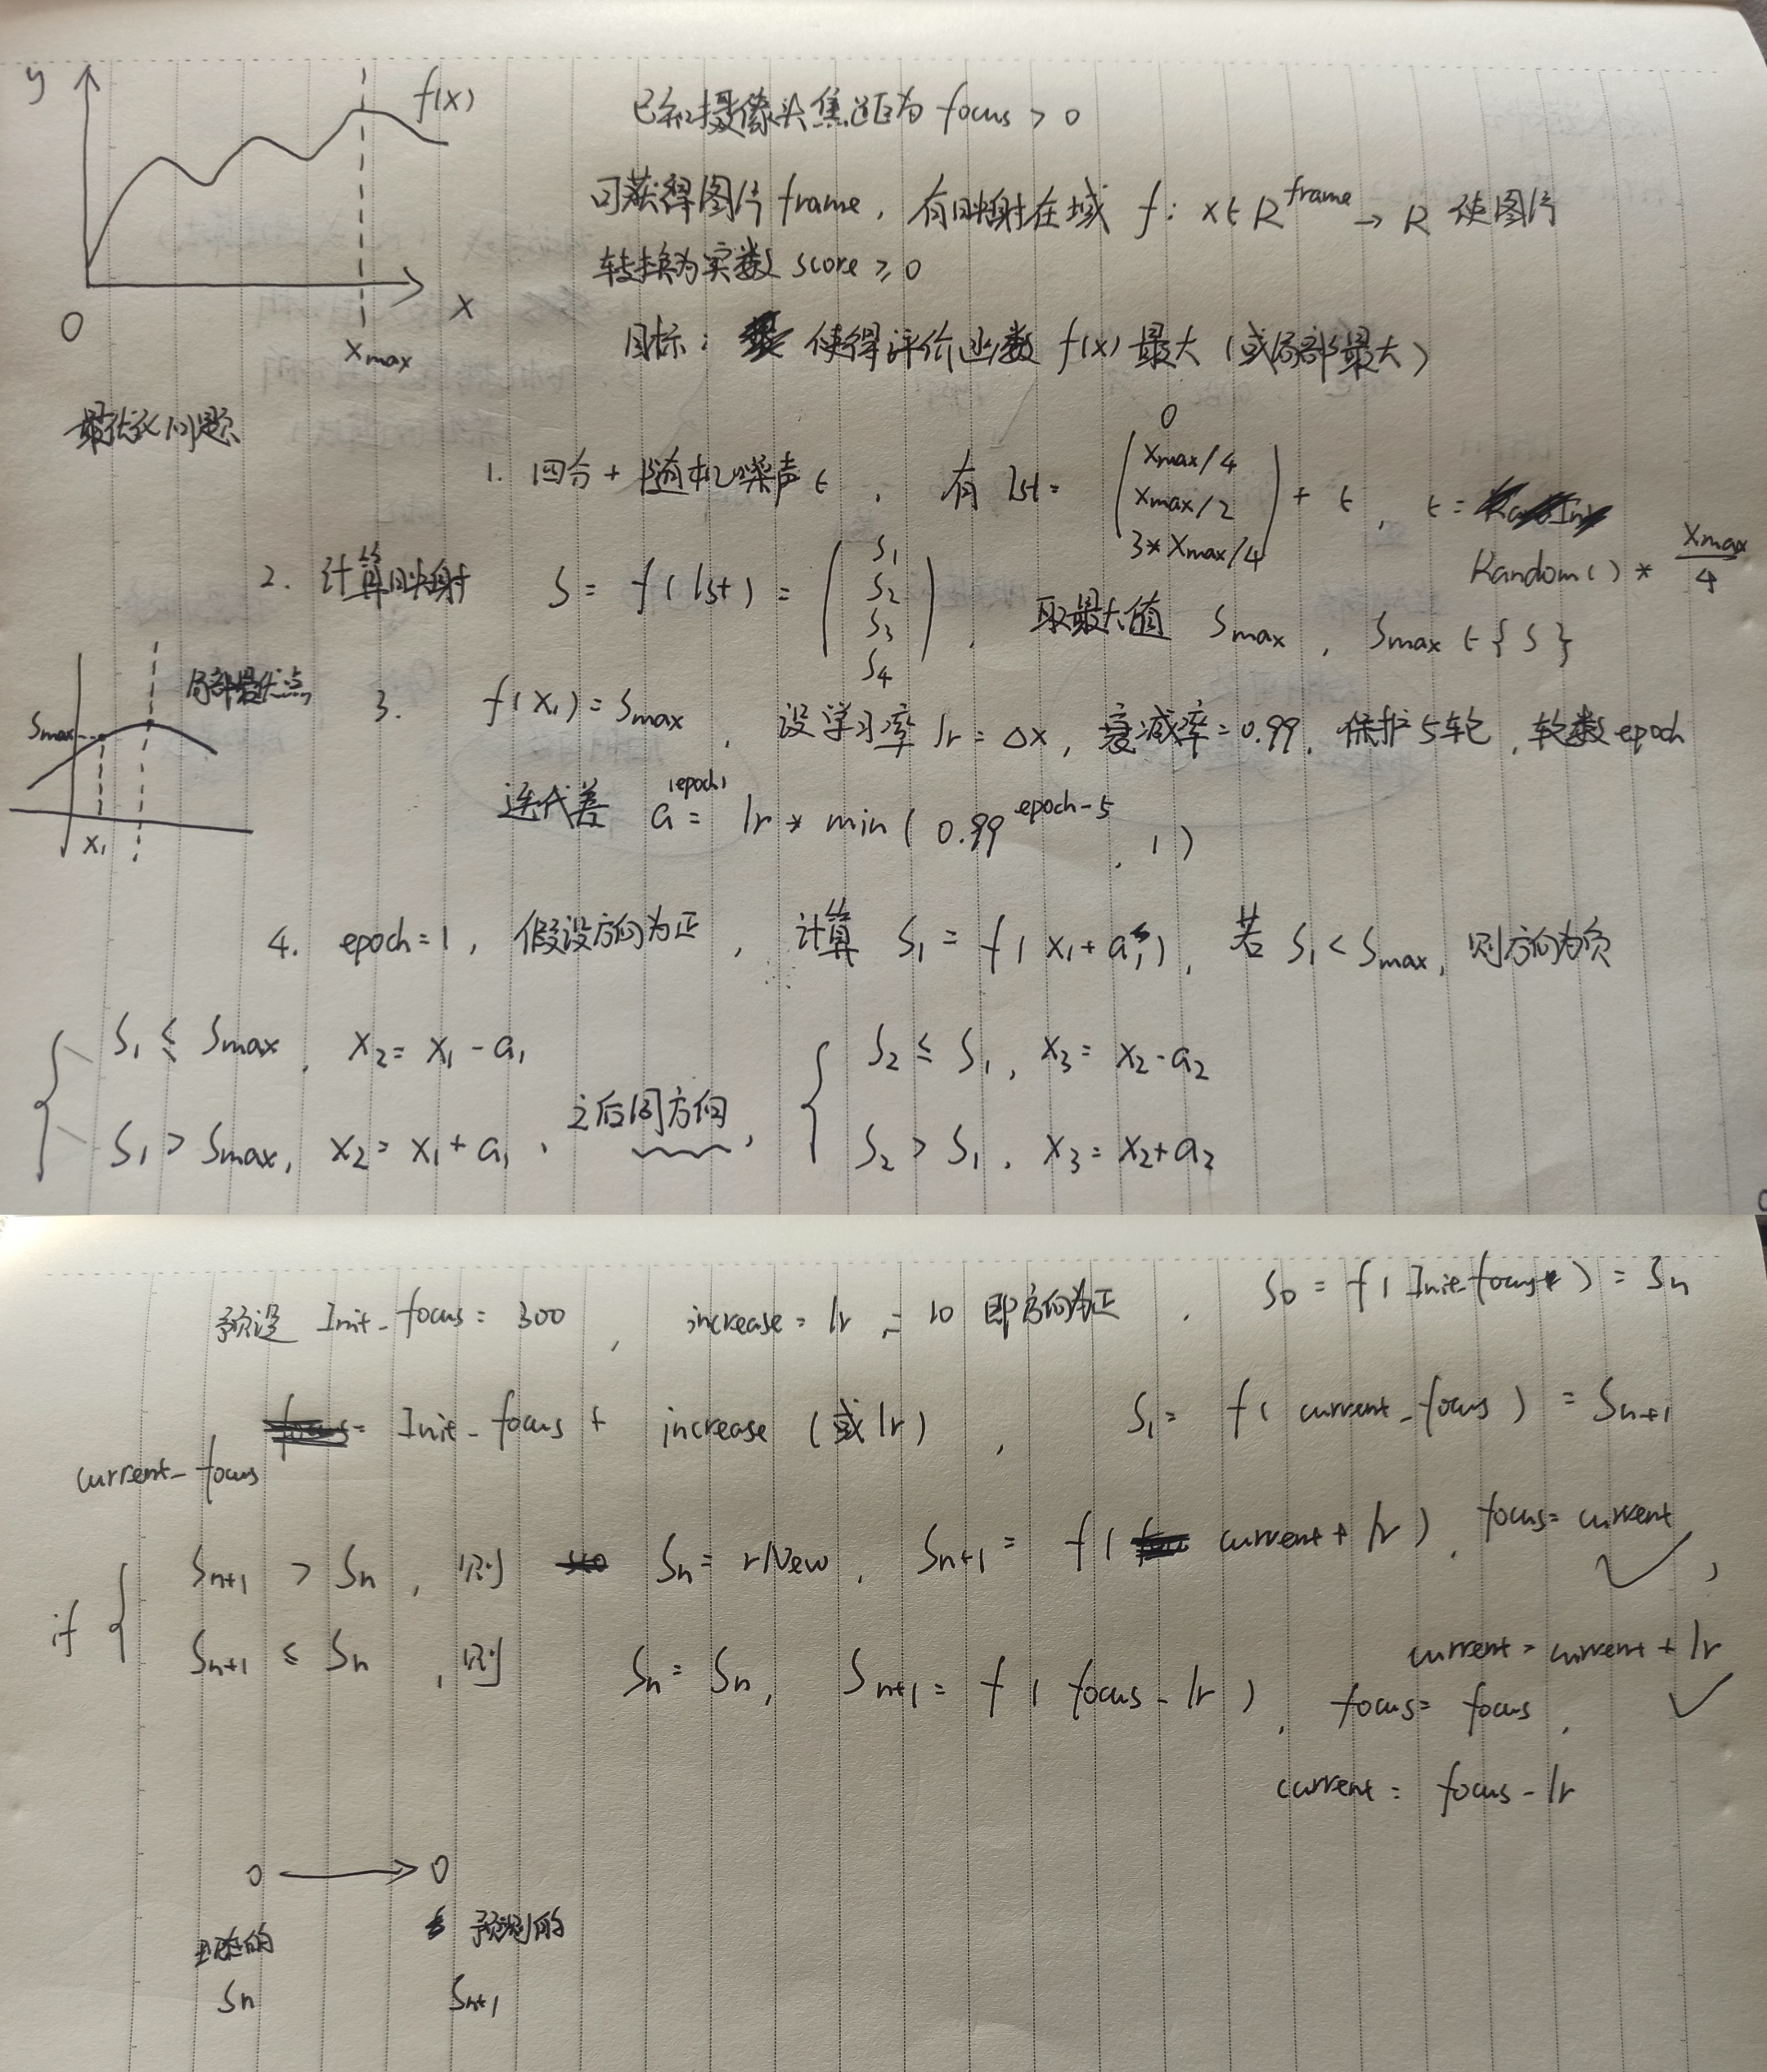 y
f(x)
O
x
xmax
已知摄像头焦距为 focus > 0
可获得图片 frame, 有映射在域 f: x ∈ R^frame → R 使图片
转换为实数 score ≥ 0
目标: 使得评价函数 f(x) 最大 (或局部最大)
最优化问题
1. 四分 + 随机噪声 ε, 有 lst = (0 xmax/4 xmax/2 3*xmax/4) + ε, ε = Random() * xmax/4
2. 计算映射 S = f(lst) = (S1 S2 S3 S4), 取最大值 Smax, Smax ∈ {S}
局部最优点
Smax
x1
3. f(x1) = Smax, 设学习率 lr = Δx, 衰减率 = 0.99, 保护5轮, 轮数 epoch
迭代差 a^(epoch) = lr * min(0.99^epoch-5, 1)
4. epoch = 1, 假设方向为正, 计算 S1 = f(x1 + a1), 若 S1 < Smax, 则方向为负
{ S1 ≤ Smax, x2 = x1 - a1
S1 > Smax, x2 = x1 + a1, 之后同方向,
{ S2 ≤ S1, x3 = x2 - a2
S2 > S1, x3 = x2 + a2
预设 Init_focus = 300, increase = lr = 10 即方向为正, S0 = f(Init_focus) = Sn
current_focus = Init_focus + increase (或 lr), S1 = f(current_focus) = Sn+1
if { Sn+1 > Sn, 则 Sn = rNew, Sn+1 = f(current + lr), focus = current,
current = current + lr
Sn+1 ≤ Sn, 则 Sn = Sn, Sn+1 = f(focus - lr), focus = focus,
current = focus - lr
0 → 0
现在的 预测的
Sn Sn+1